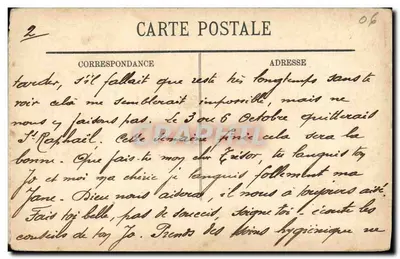 2
06
CARTE POSTALE
CORRESPONDANCE
ADRESSE
tarder, s'il fallait que reste très longtemps sans te
voir cela me semblerait impossible, mais ne
nous y faisons pas. Le 3 ou 6 Octobre quitterais
St Raphaël. Cette semaine finie cela sera la
bonne. Que fais-tu moy mon Trésor, tu languis toy
Jo et moi ma chérie je languis follement ma
Jane. Dieu nous aidera, il nous a toujours aidé.
Fais toi belle, pas de soucis, soigne toi - écoute les
conseils de ton Jo. Prends des soins hygiénique ne